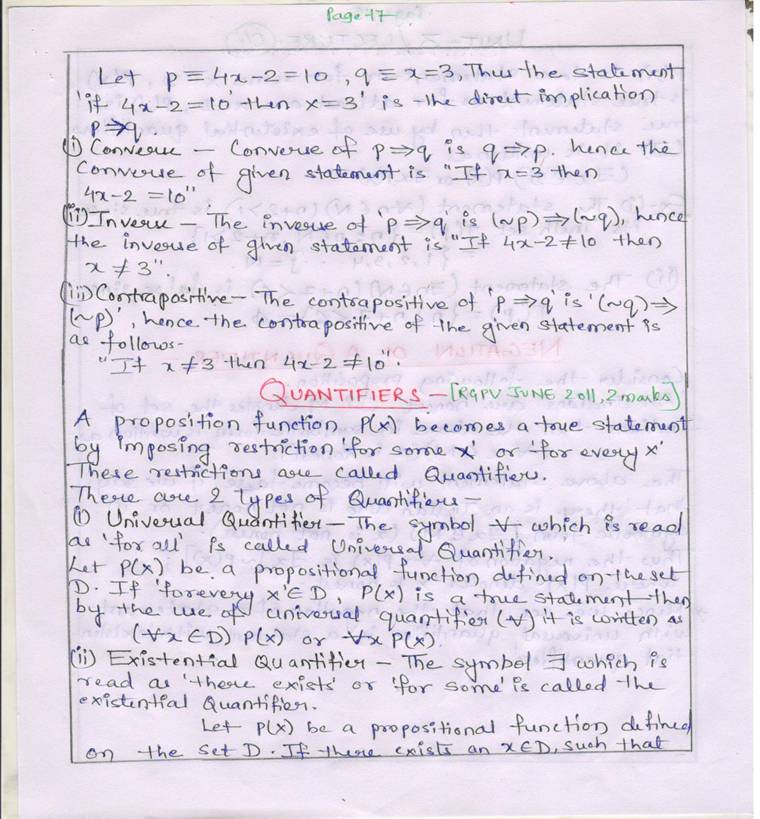 Page-17
Let p ≡ 4x-2=10, q ≡ x=3, Thus the statement
'if 4x-2=10 then x=3' is the direct implication
p⇒q.
(i) Converse - Converse of p⇒q is q⇒p. hence the
Converse of given statement is "If x=3 then
4x-2=10"
(ii) Inverse - The inverse of 'p⇒q' is (~p)⇒(~q), hence
the inverse of given statement is "If 4x-2≠10 then
x≠3".
(iii) Contrapositive - The contrapositive of 'p⇒q' is '(~q)⇒
(~p)', hence the contrapositive of the given statement is
as follows-
"If x≠3 then 4x-2≠10".
QUANTIFIERS - [RGPV JUNE 2011, 2 marks]
A proposition function P(x) becomes a true statement
by imposing restriction 'for some x' or 'for every x'
These restrictions are called Quantifier.
There are 2 types of Quantifiers-
(i) Universal Quantifier - The symbol ∀ which is read
as 'for all' is called Universal Quantifier.
Let P(x) be a propositional function defined on the set
D. If 'for every x'∈D, P(x) is a true statement then
by the use of universal quantifier (∀) it is written as
(∀x∈D) P(x) or ∀x P(x).
(ii) Existential Quantifier - The symbol ∃ which is
read as 'there exists' or 'for some' is called the
existential Quantifier.
Let P(x) be a propositional function defined
on the set D. If there exists an x∈D, such that